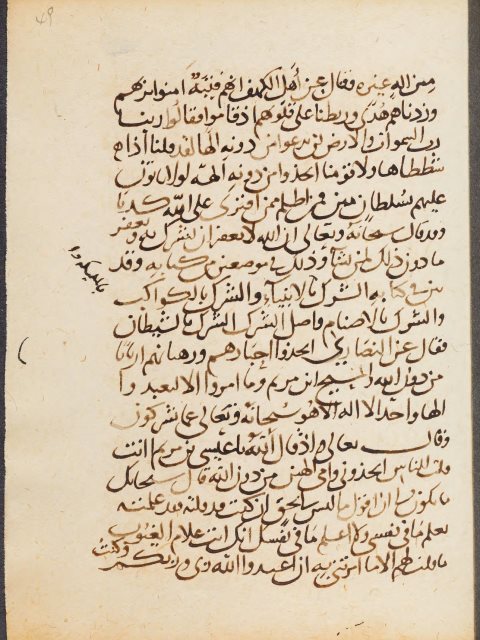 49
من الله عنده وقال عن أهل الكهف انهم فتية آمنوا بربهم
وزدناهم هدى وربطنا على قلوبهم اذ قاموا فقالوا ربنا
رب السموات والارض لن ندعو من دونه الها لقد قلنا اذا
شططا هاولا قومنا اتخذوا من دونه الهة لولا ياتون
عليهم بسلطان بين فمن اظلم ممن افترى على الله كذبا
وقد قال سبحانه وتعالى ان الله لا يغفر ان يشرك به ويغفر
ما دون ذلك لمن يشاء وذلك في موضعين من كتابه وقد
بين في كتابه الشرك بالانبياء والشرك بالكواكب
والشرك بالاصنام واصل الشرك الشرك بالشيطان
فقال عن النصارى اتخذوا احبارهم ورهبانهم اربابا
من دون الله والمسيح ابن مريم وما امروا الا ليعبدوا
الها واحدا لا اله الا هو سبحانه وتعالى عما يشركون
وقال تعالى واذ قال الله يا عيسى بن مريم اانت
قلت للناس اتخذوني وامي الهين من دون الله قال سبحانك
ما يكون لي ان اقول ما ليس لي بحق ان كنت قلته فقد علمته
تعلم ما في نفسي ولا اعلم ما في نفسك انك انت علام الغيوب
ما قلت لهم الا ما امرتني به ان اعبدوا الله ربي وربكم وكنت